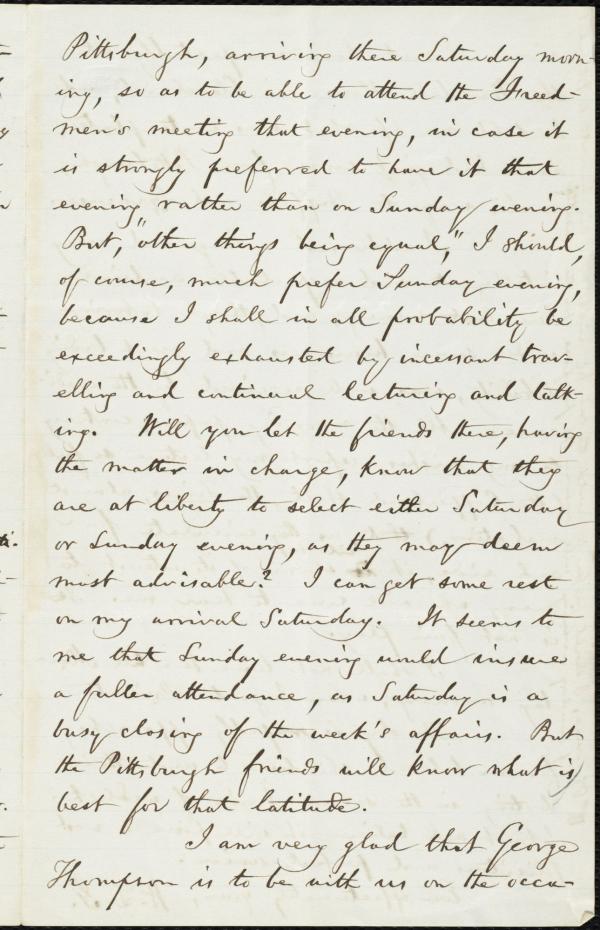 Pittsburgh, arriving there Saturday morn-
ing, so as to be able to attend the Freed-
men's meeting that evening, in case it
is strongly preferred to have it that
evening rather than on Sunday evening.
But, "other things being equal," I should,
of course, much prefer Sunday evening,
because I shall in all probability be
exceedingly exhausted by incessant trav-
elling and continual lecturing and talk-
ing. Will you let the friends there, having
the matter in charge, know that they
are at liberty to select either Saturday
or Sunday evening, as they may deem
most advisable? I can get some rest
on my arrival Saturday. It seems to
me that Sunday evening would insure
a fuller attendance, as Saturday is a
busy closing of the week's affairs. But
the Pittsburgh friends will know what is
best for that latitude.
I am very glad that George
Thompson is to be with us on the occa-